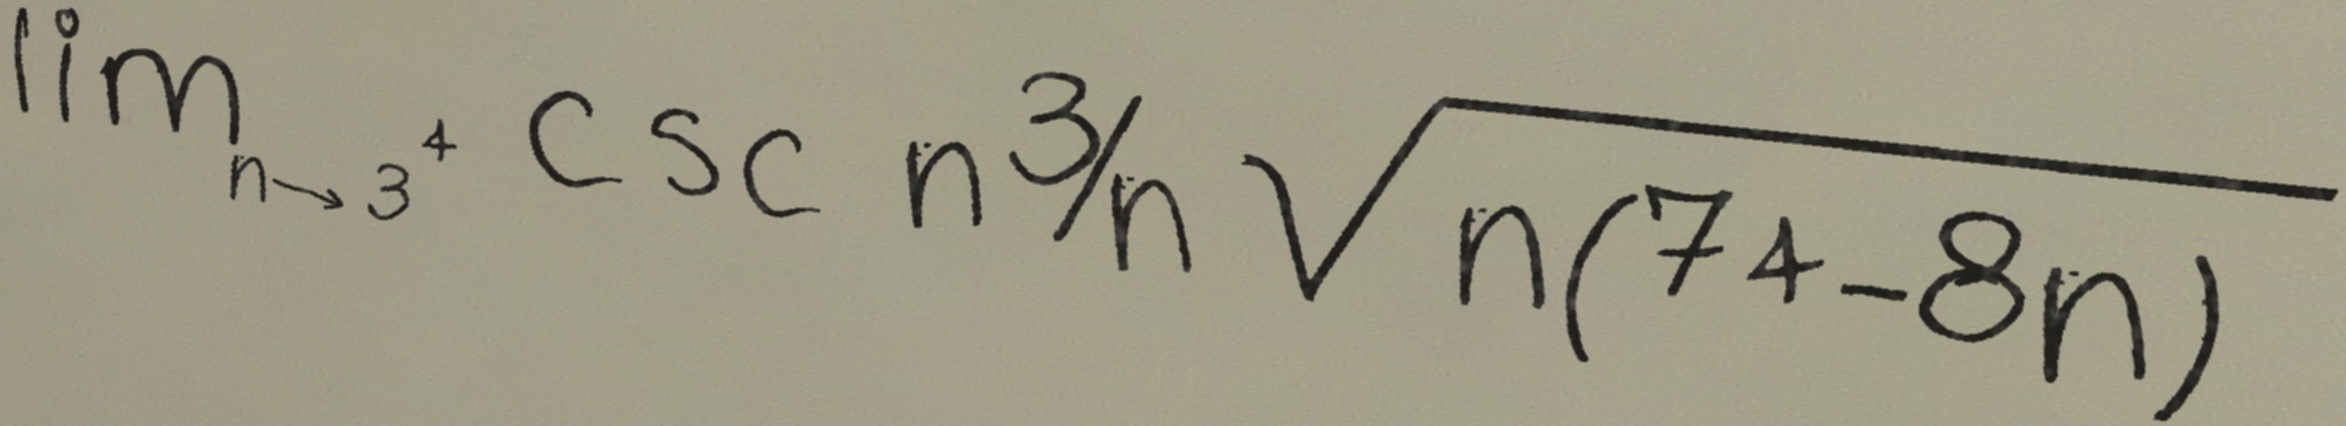 lim n→3⁺ csc n³/n √n(74-8n)